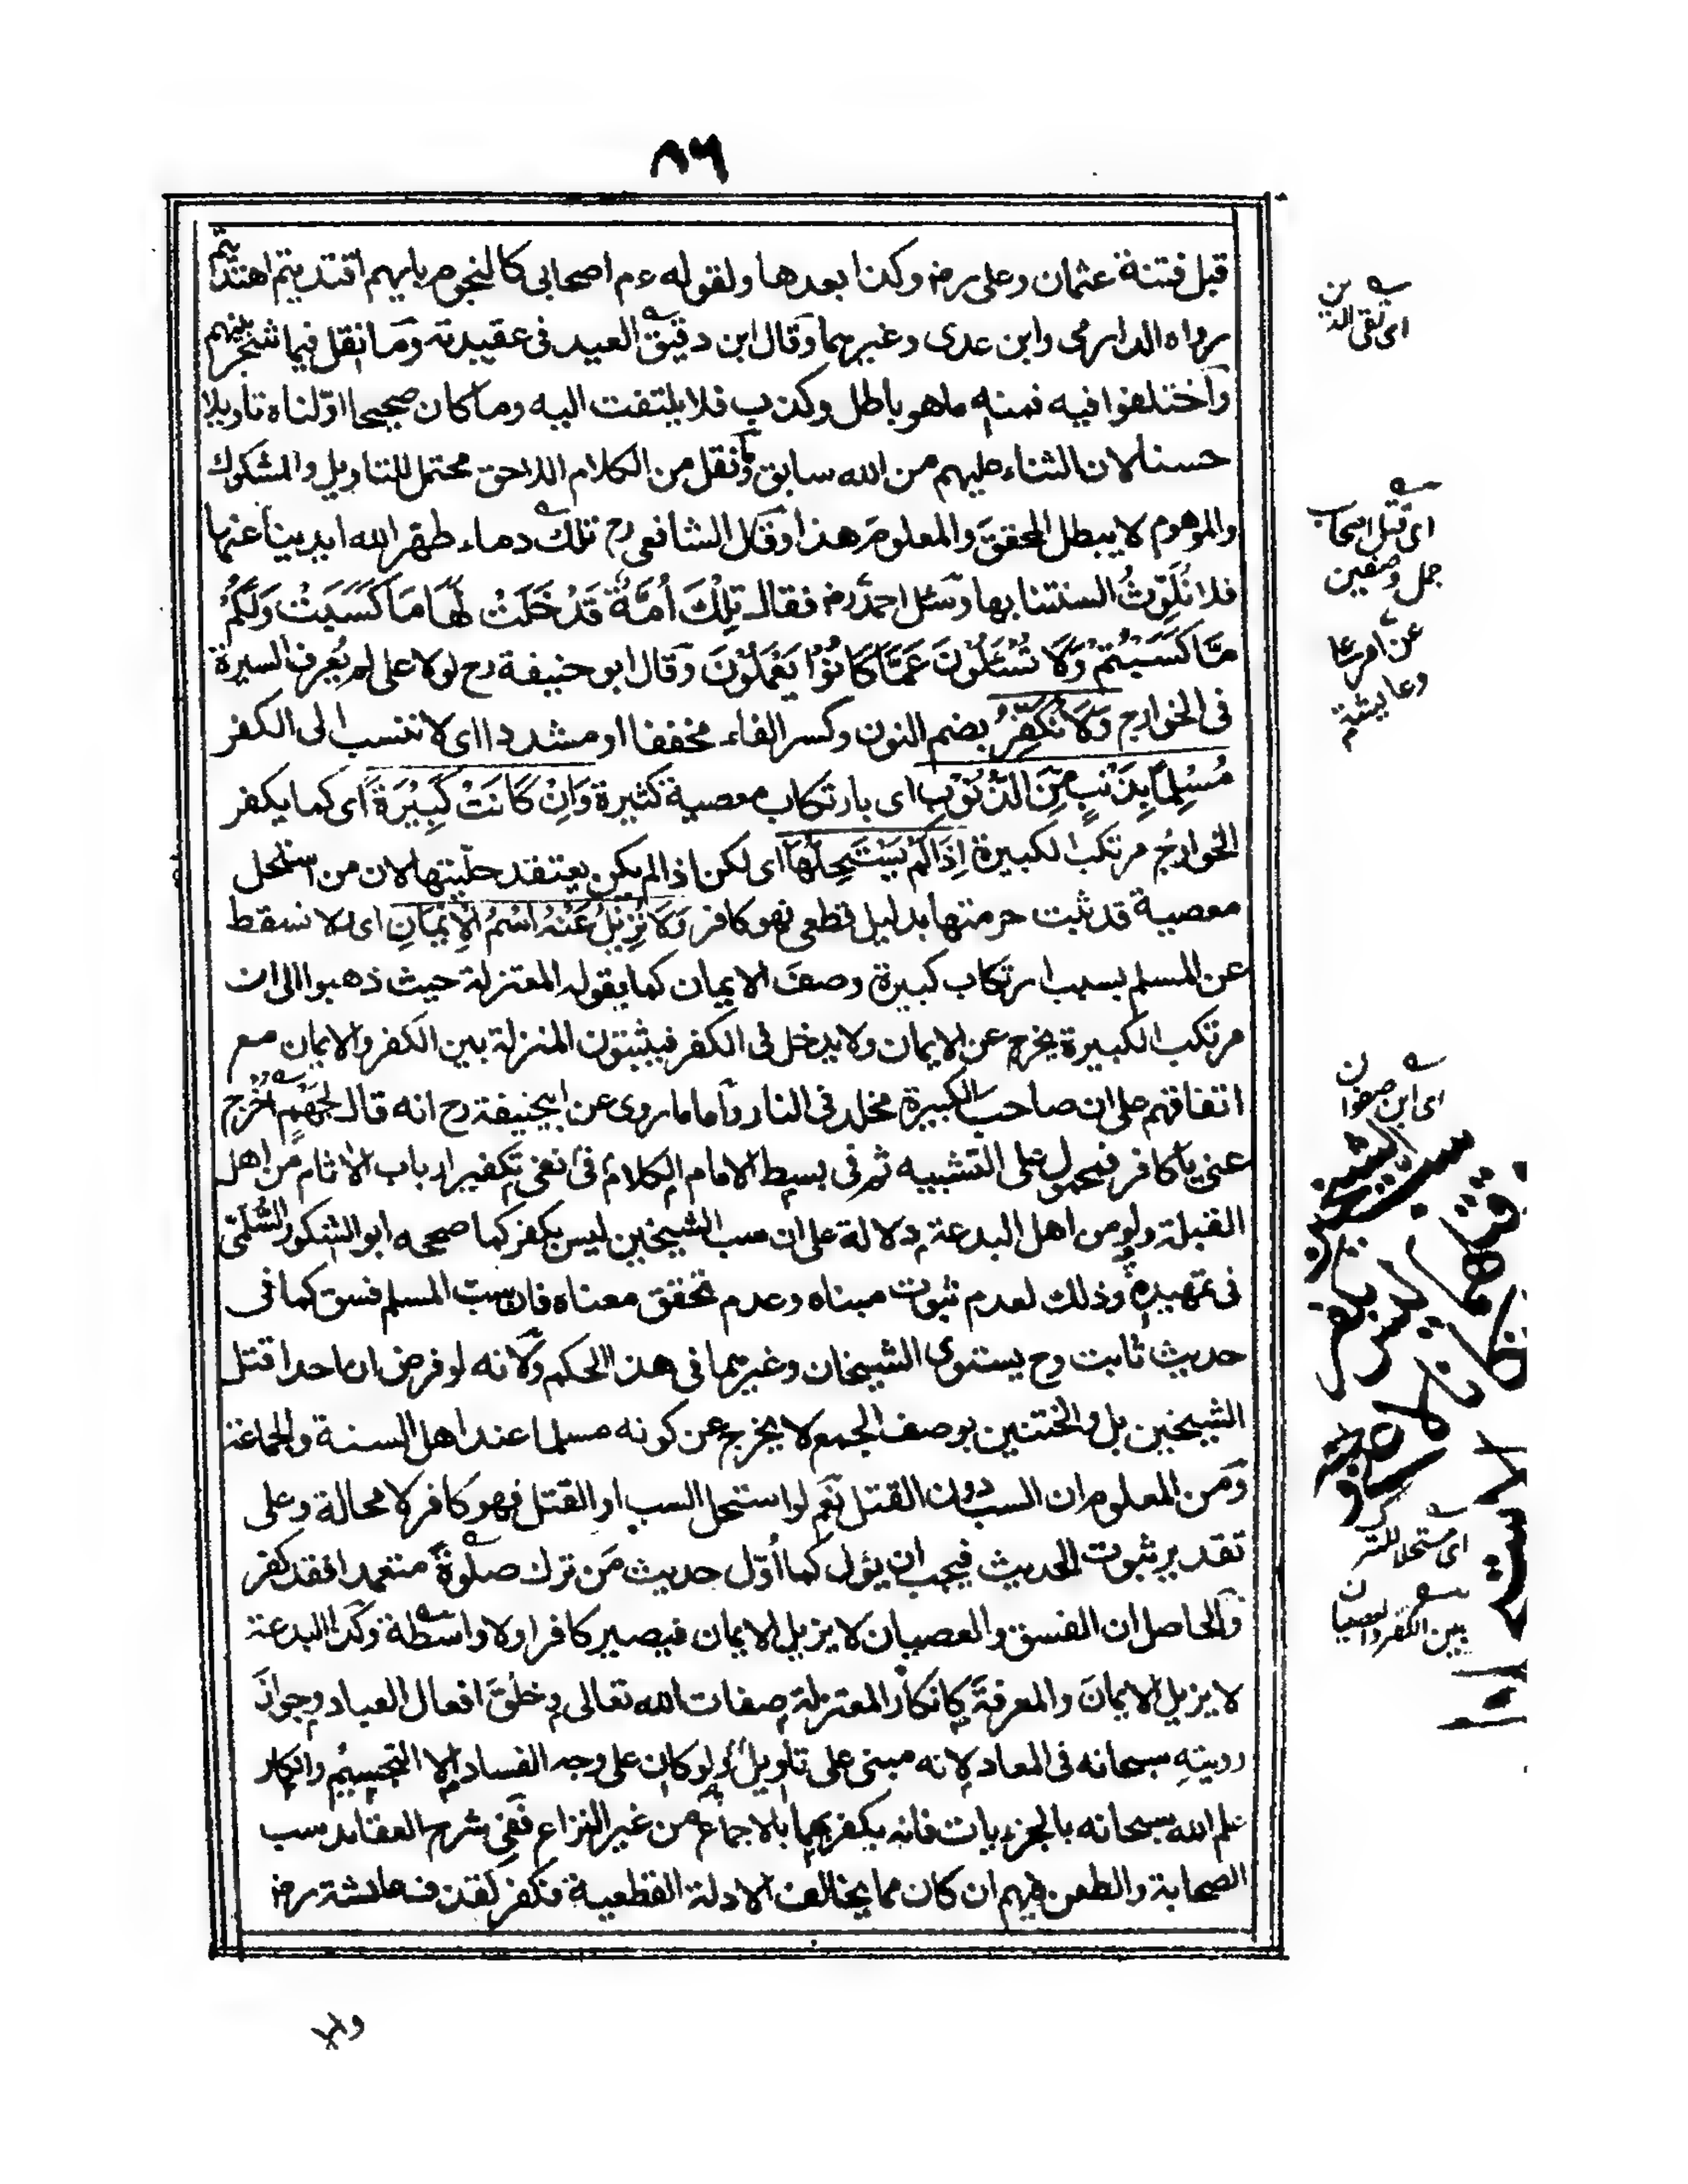 ٨٦
قبل فتنة عثمان وعلى رض وكذا بعدها ولقوله ءم اصحابى كالنجوم بايهم اقتديتم اهتديتم
رواه الدارمى وابن عدى وغيرهما وقال ابن دقيق العيد فى عقيدته وما نقل فيما شجر بينهم
واختلفوا فيه فمنه ما هو باطل وكذب فلا يلتفت اليه وما كان صحيحا اوّلناه تاويلا
حسنا لان الثناء عليهم من الله سابق وما نقل من الكلام اللاحق محتمل للتاويل والمشكوك
والموهوم لا يبطل المحقق والمعلوم هذا وقال الشافعى رح تلك دماء طهر الله ايدينا عنها
فلا نُلَوِّثُ السنتنا بها وسئل احمد رض فقال تِلْكَ أُمَّةٌ قَدْ خَلَتْ لَهَا مَا كَسَبَتْ وَلَكُمْ
مَّا كَسَبْتُمْ وَلَا تُسْئَلُوْنَ عَمَّا كَانُوْا يَعْمَلُوْنَ وقال ابو حنيفة رح لولا على لم يُعرف السيرة
فى الخوارج وَلَا نُكَفِّرُ بضم النون وكسر الفاء مخففا او مشددا اى لا ننسب الى الكفر
مُسْلِمًا بِذَنْبٍ مِّنَ الذُّنُوْبِ اى بارتكاب معصية كثيرة وَاِنْ كَانَتْ كَبِيْرَةً اى كما يكفر
الخوارج مرتكب الكبيرة اِذَا لَمْ يَسْتَحِلَّهَا اى لكن اذا لم يكن يعتقد حلّيتها لان من استحل
معصية قد ثبت حرمتها بدليل قطعى فهو كافر وَلَا نُزِيْلُ عَنْهُ اسْمُ الْاِيْمَانِ اى لا نسقط
عن المسلم بسبب ارتكاب كبيرة وصفَ الايمان كما يقوله المعتزلة حيث ذهبوا الى ان
مرتكب الكبيرة يخرج عن الايمان ولا يدخل فى الكفر فيثبتون المنزلة بين الكفر والايمان مع
اتفاقهم على ان صاحب الكبيرة مخلد فى النار واما ما روى عن ابيحنيفة رح انه قال لجَهْمٍ اُخْرج
عنى يا كافر فمحمول على التشبيه ثم فى بسط الامام الكلام فى نفى تكفير ارباب الاثام من اهل
القبلة ولو من اهل البدعة دلالة على ان سب الشيخين ليس بكفر كما صححه ابو الشكور السُّلَمى
فى تمهيده وذلك لعدم ثبوت مبناه وعدم تحقق معناه فان سبّ المسلم فسق كما فى
حديث ثابت وح يستوى الشيخان وغيرهما فى هذا الحكم ولانه لو فرض ان احدا قتل
الشيخين بل والختنين بوصف الجمع لا يخرج عن كونه مسلما عند اهل السنة والجماعة
ومن المعلوم ان السب دون القتل نعم لو استحل السب او القتل فهو كافر لا محالة وعلى
تقدير ثبوت الحديث فيجب ان يؤل كما اُوّل حديث مَن ترك صلوةً متعمدا فقد كفر
والحاصل ان الفسق والعصيان لا يزيل الايمان فيصير كافرا ولا واسطة وكذا البدعة
لا يزيل الايمان والمعرفة كانكار المعتزلة صفات الله تعالى وخلقَ افعال العباد وجوازَ
رويتهِ سبحانه فى المعاد لانه مبنى على تأويل ولو كان على وجه الفساد الا التجسيم وانكار
علم الله سبحانه بالجزءيات فانه يكفر بهما بالاجماع من غير النزاع ففى شرح العقايد سب
الصحابة والطعن فيهم ان كان مما يخالف الادلة القطعية فكفر كقذف عائشة رض
اى تقى الدين
اى قتل اصحاب
جمل وصفين
وعايشة
اى ابن صفوان
اى مستحلا للترك
بين الكفر والعصيان
والا